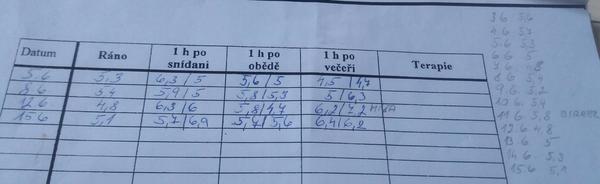 Datum Ráno 1 h po snídani 1 h po obědě 1 h po večeři Terapie
5.6 5,3 6,3/5 5,6/5 4,5/4,7
8.6 5,4 5,9/5 5,8/5,3 5/6,3
12.6 4,8 6,3/6 5,8/4,4 6,2/7,2
15.6 5,1 5,7/6,9 5,4/5,6 6,4/6,2
3.6 5,6
4.6 5,7
5.6 5,3
6.6 5
4,8
8.6 5,4
9.6 5,2
5,4
11.6 5,8
12.6 4,8
13.6 5
14.6 5,3
15.6 5,1